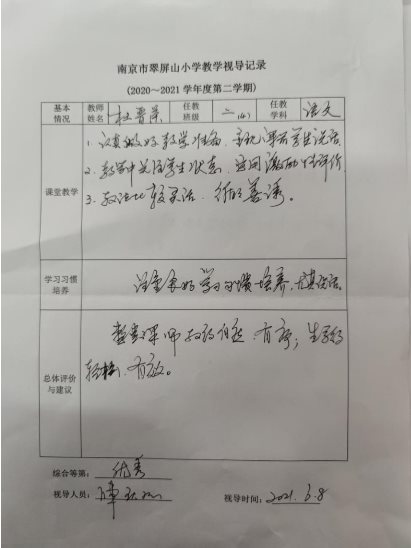 南京市翠屏山小学教学视导记录
(2020～2021学年度第二学期)
基本情况 教师姓名 杜晋萍 任教班级 二(4) 任教学科 语文
课堂教学
1、认真做好教学准备,重视课前学生说话。
2、教学中关注学生状态,适同激励性评价
3、教法比较灵活、循循善诱。
学习习惯培养
注重良好学习习惯培养,尤其说话。
总体评价与建议
整堂课师教的自然、有序;生学的
轻松、有效。
综合等第: 优秀
视导人员:
视导时间: 2021.3.8